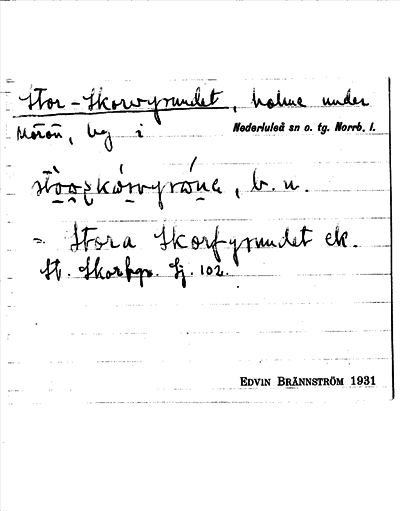 Stor-Skorvgrundet, holme under
Mörön, by i Nederluleå sn o. tg. Norrb. l.
b. n.
= Stora Skorfgrundet ek.
St. Skorfgr. Sj. 102.
EDVIN BRÄNNSTRÖM 1931